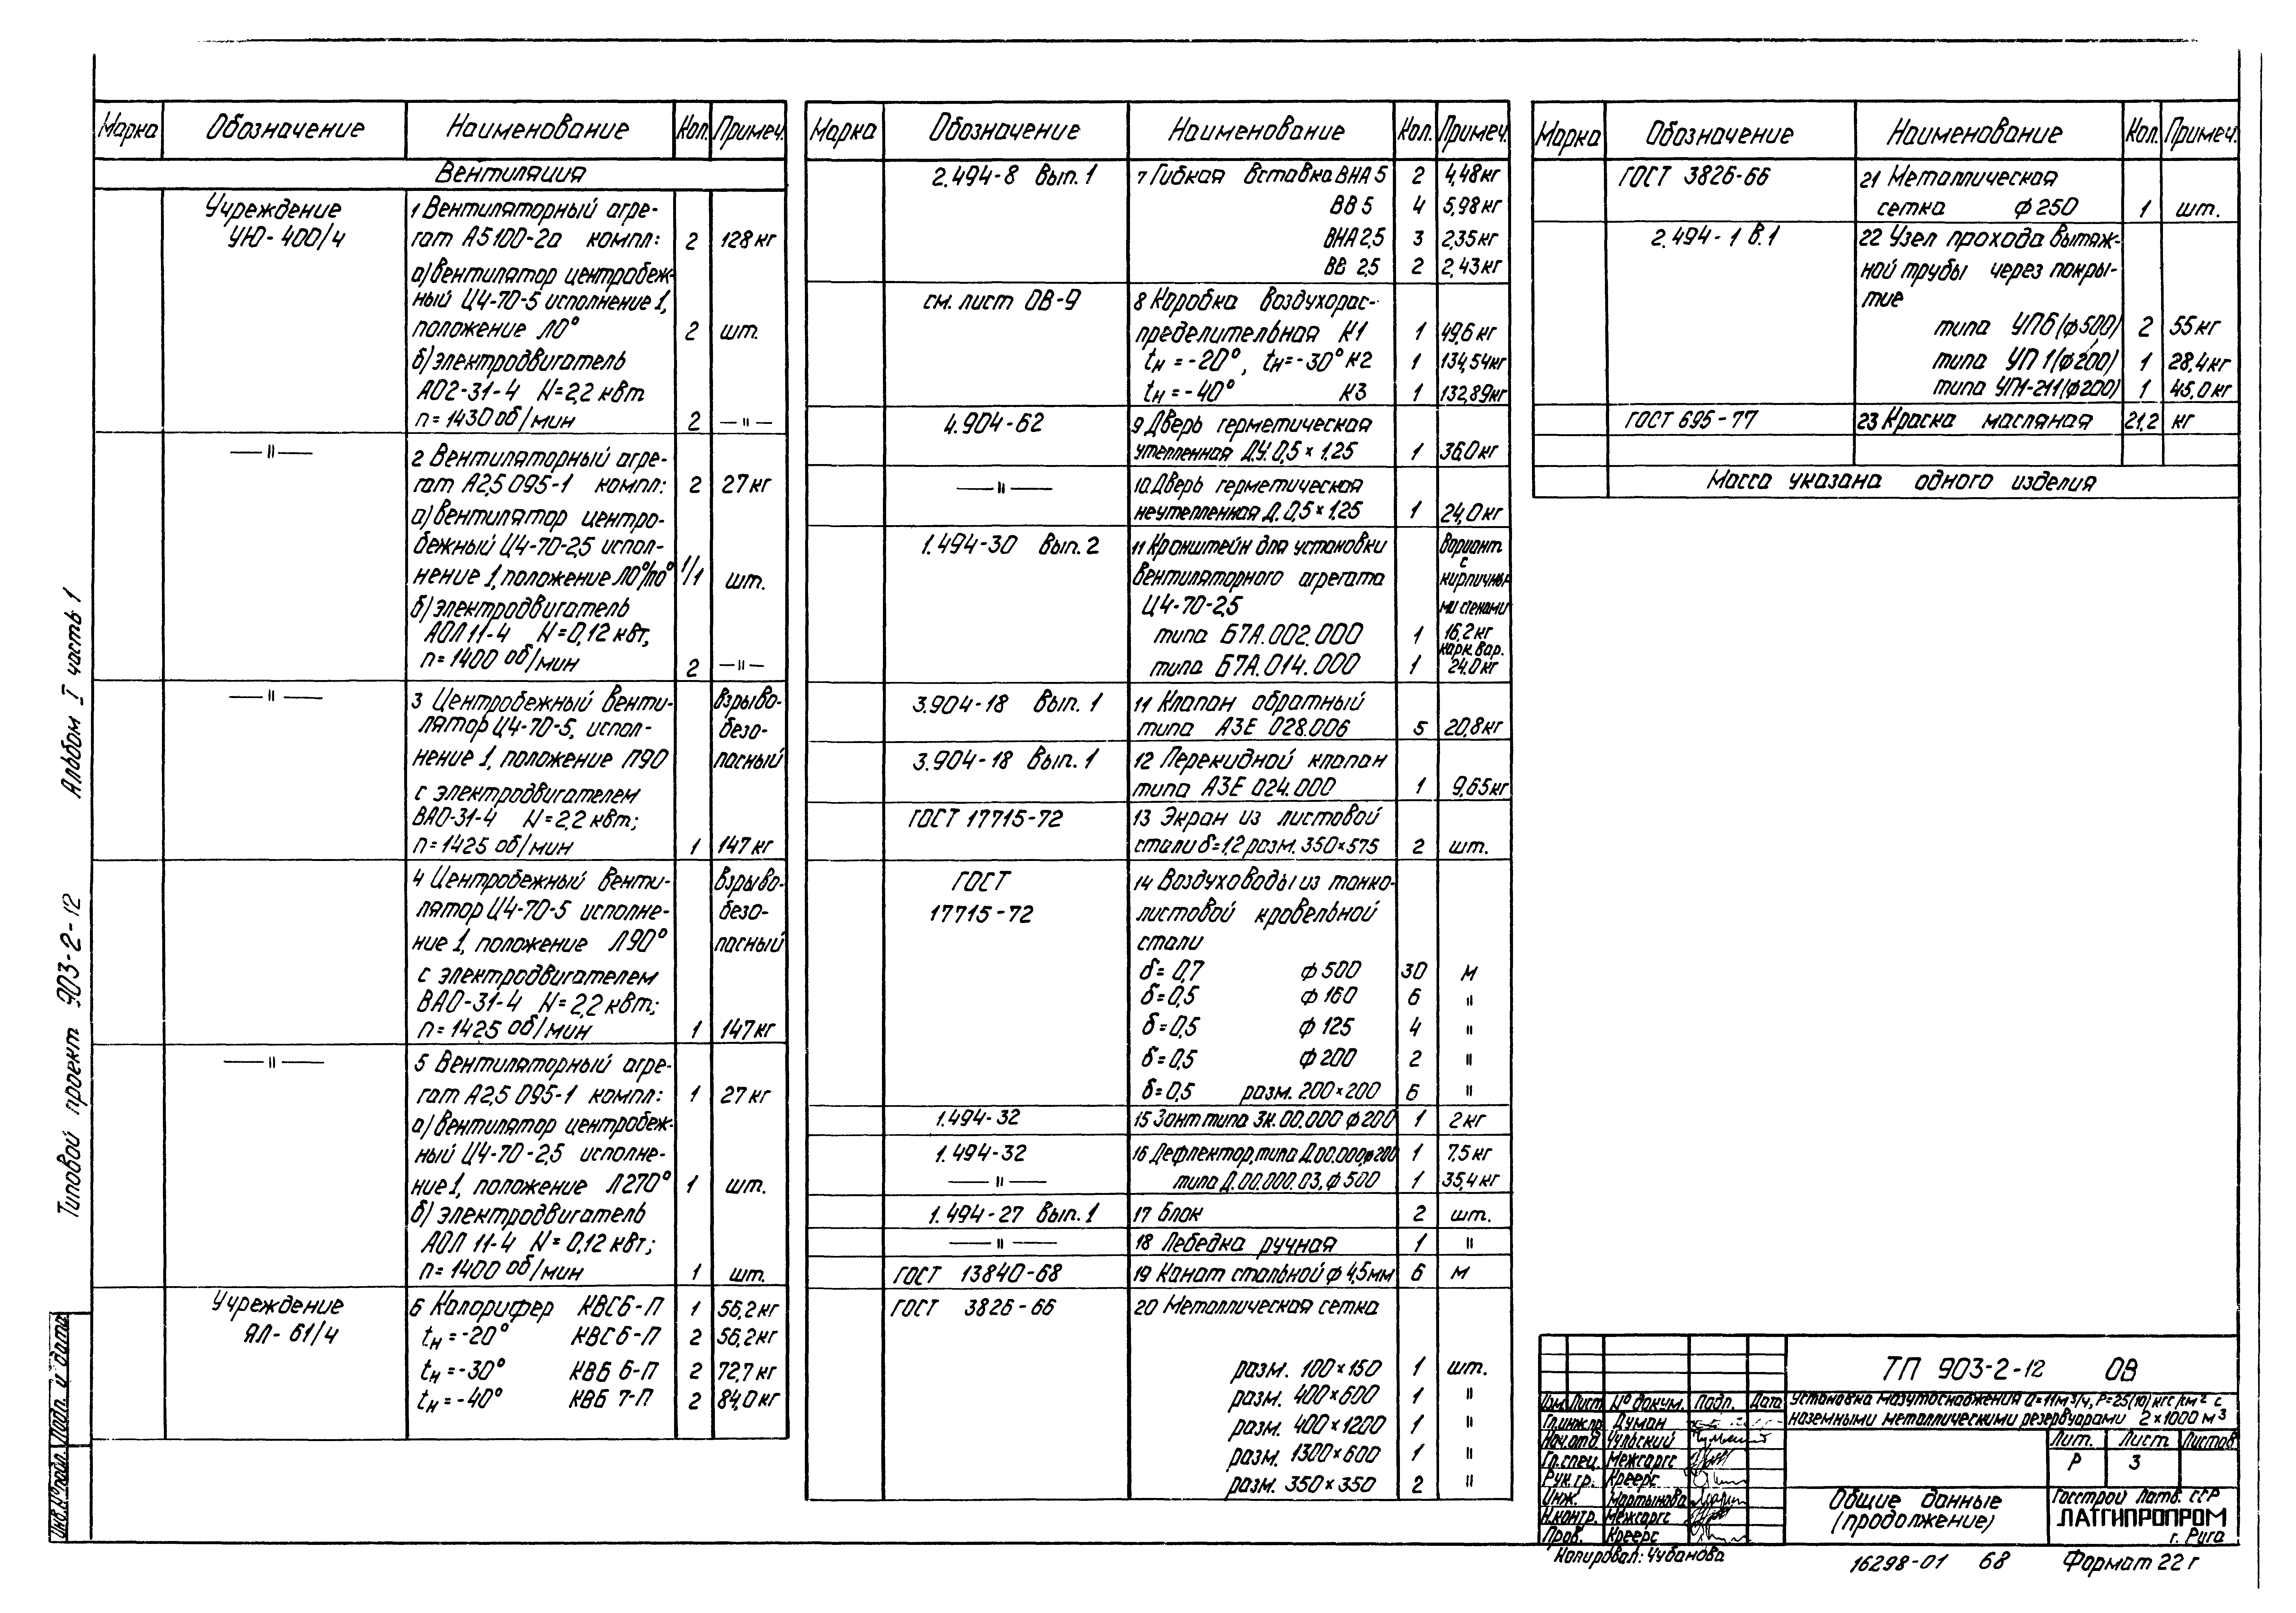 Марка Обозначение Наименование Кол. Примеч.
Вентиляция
Учреждение 1 Вентиляторный агре-
УЮ-400/4 гат А5100-2а компл: 2 128кг
а) вентилятор центробеж-
ный Ц4-70-5 исполнение 1,
положение Л0° 2 шт.
б) электродвигатель
АО2-31-4 N=2,2 квт
n=1430 об/мин 2 —"—
—"— 2 Вентиляторный агре-
гат А2,5 095-1 компл: 2 27кг
а) вентилятор центро-
бежный Ц4-70-2,5 испол-
нение 1, положение Л0°/п0° 1/1 шт.
б) электродвигатель
АОЛ 11-4 N=0,12 квт,
n=1400 об/мин 2 —"—
—"— 3 Центробежный венти- взрыво-
лятор Ц4-70-5, испол- безо-
нение 1, положение П90 пасный
с электродвигателем
ВАО-31-4 N=2,2 квт;
n=1425 об/мин 1 147кг
4 Центробежный венти- взрыво-
лятор Ц4-70-5 исполне- безо-
ние 1, положение Л90° пасный
с электродвигателем
ВАО-31-4 N=2,2 квт;
n=1425 об/мин 1 147кг
—"— 5 Вентиляторный агре-
гат А2,5 095-1 компл: 1 27кг
а) вентилятор центробеж-
ный Ц4-70-2,5 исполне-
ние 1, положение Л270° 1 шт.
б) электродвигатель
АОЛ 11-4 N=0,12 квт;
n=1400 об/мин 1 шт.
Учреждение 6 Калорифер КВС6-П 1 56,2кг
ЯЛ-61/4 tн=-20° КВС6-П 2 56,2кг
tн=-30° КВБ 6-П 2 72,7кг
tн=-40° КВБ 7-П 2 84,0кг
Марка Обозначение Наименование Кол. Примеч.
2.494-8 Вып. 1 7 Гибкая вставка ВНА 5 2 4,48кг
ВВ 5 4 5,98кг
ВНА 2,5 3 2,35кг
ВВ 2,5 2 2,43кг
см. лист ОВ-9 8 Коробка воздухорас-
пределительная К1 1 49,6 кг
tн=-20°, tн=-30° К2 1 134,54кг
tн=-40° К3 1 132,89кг
4.904-62 9 Дверь герметическая
утепленная Д.У. 0,5×1.25 1 36,0кг
—"— 10 Дверь герметическая
неутепленная Д. 0,5×1,25 1 24,0кг
1.494-30 Вып. 2 11 Кронштейн для установки Вариант
вентиляторного агрегата с кирпичны-
Ц4-70-2,5 ми стенами
типа Б7А.002.000 1 16,2кг
карк. вар.
типа Б7А.014.000 1 24.0кг
3.904-18 Вып. 1 11 Клапан обратный
типа А3Е 028.006 5 20,8кг
3.904-18 Вып. 1 12 Перекидной клапан
типа А3Е 024.000 1 9,65кг
ГОСТ 17715-72 13 Экран из листовой
стали δ=1,2 разм. 350×575 2 шт.
ГОСТ 14 Воздуховоды из тонко-
17715-72 листовой кровельной
стали
δ=0,7 ф 500 30 м
δ=0,5 ф 160 6 "
δ=0,5 ф 125 4 "
δ=0,5 ф 200 2 "
δ=0,5 разм. 200×200 6 "
1.494-32 15 Зонт типа ЗК.00.000 ф 200 1 2 кг
1.494-32 16 Дефлектор, типа Д.00.000,ф200 1 7,5кг
—"— типа Д.00.000.03, ф 500 1 35,4кг
1.494-27 Вып. 1 17 Блок 2 шт.
—"— 18 Лебедка ручная 1 "
ГОСТ 13840-68 19 Канат стальной ф 4,5мм 6 м
ГОСТ 3826-66 20 Металлическая сетка
разм. 100×150 1 шт.
разм. 400×600 1 "
разм. 400×1200 1 "
разм. 1300×600 1 "
разм. 350×350 2 "
Марка Обозначение Наименование Кол. Примеч.
ГОСТ 3826-66 21 Металлическая
сетка ф 250 1 шт.
2.494-1 в.1 22 Узел прохода вытяж-
ной трубы через покры-
тие
типа УП6 (ф 500) 2 55кг
типа УП 1 (ф200) 1 28,4кг
типа УП1-211 (ф200) 1 45,0кг
ГОСТ 695-77 23 Краска масляная 21,2 кг
Масса указана одного изделия
Типовой проект 903-2-12 Альбом I часть 1
Инв.№подл. Подп. и дата
ТП 903-2-12 ОВ
Изм Лист № докум. Подп. Дата
Установка мазутоснабжения Q=11м³/ч, Р=25(10) кгс/см² с
наземными металлическими резервуарами 2×1000 м³
Гл.инж.пр. Думан
Нач.отд. Чульский
Гл.спец. Межсаргс
Рук.гр. Креерс
Инж. Мартынова
Н.контр. Межсаргс
Пров. Креерс
Лит. Лист Листов
Р 3
Общие данные
(продолжение)
Госстрой Латв. ССР
ЛАТГИПРОПРОМ
г. Рига
Копировал: Чубанова 16298-01 68 Формат 22 г